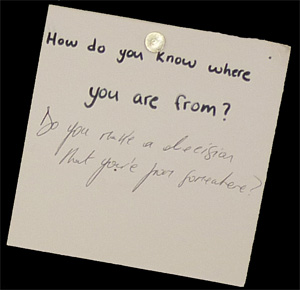 How do you know where
you are from?
Do you make a decision
that you're from somewhere?